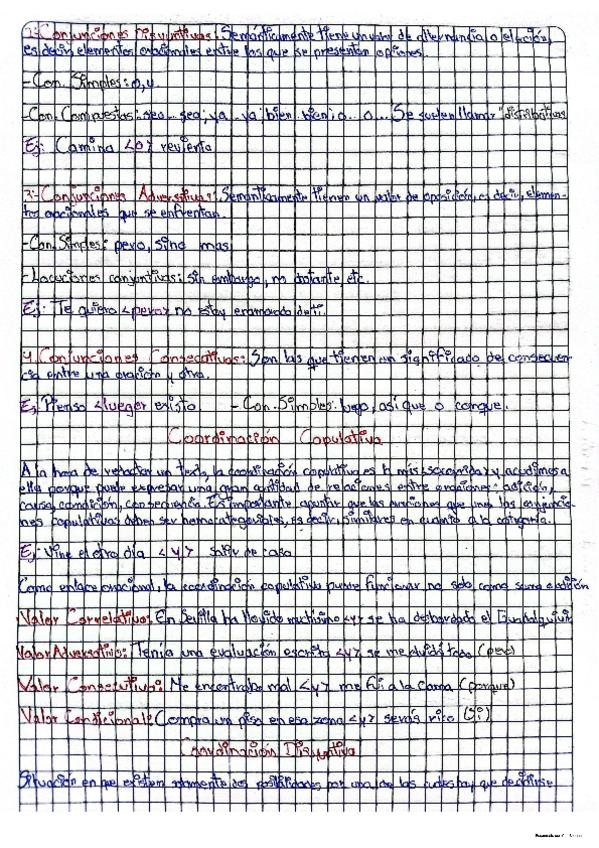 2-Conjunciones Disyuntivas: Semánticamente tiene un valor de alternancia o elección,
es decir, elementos oracionales entre los que se presentan opciones.
-Con. Simples: o, u.
-Con. Compuestas: sea... sea; ya... ya; bien... bien; o... o... Se suelen llamar "distributivas
Ej: Camina <o> revienta
3-Conjunciones Adversativas: Semánticamente tienen un valor de oposición, es decir, elemen-
tos oracionales que se enfrentan.
-Con. Simples: pero, sino mas
-Locuciones conjuntivas: sin embargo, no obstante, etc.
Ej: Te quiero <pero> no estoy enamorado de ti.
4 Conjunciones Consecutivas: Son las que tienen un significado de consecuen-
cia entre una oración y otra.
Ej: Pienso <luego> existo. - Con. Simples: luego, así que o conque.
Coordinación Copulativa
A la hora de redactar un texto, la coordinación copulativa es la más socorrida y acudimos a
ella porque puede expresar una gran cantidad de relaciones entre oraciones: adición,
causa, condición, consecuencia. Es importante apuntar que las que unen las conjuncio-
nes copulativas deben ser es decir, similares en cuanto a la categoría.
Ej: Vine el otro día <y> salir de casa
Como enlace oracional, la coordinación copulativa puede funcionar no solo como suma o adición
Valor Correlativo: En Sevilla ha llovido muchísimo <y> se ha desbordado el Guadalquivir
Valor Adversativo: Tenía una evaluación escrita <y> se me olvidó todo (pero)
Valor Consecutivo: Me encontraba mal <y> me fui a la cama (porque)
Valor Condicional: Compra un piso en esa zona <y> serás rico (Si)
Coordinación Disyuntiva
Situación en que existen solamente dos posibilidades por una de las cuales hay que decidirse